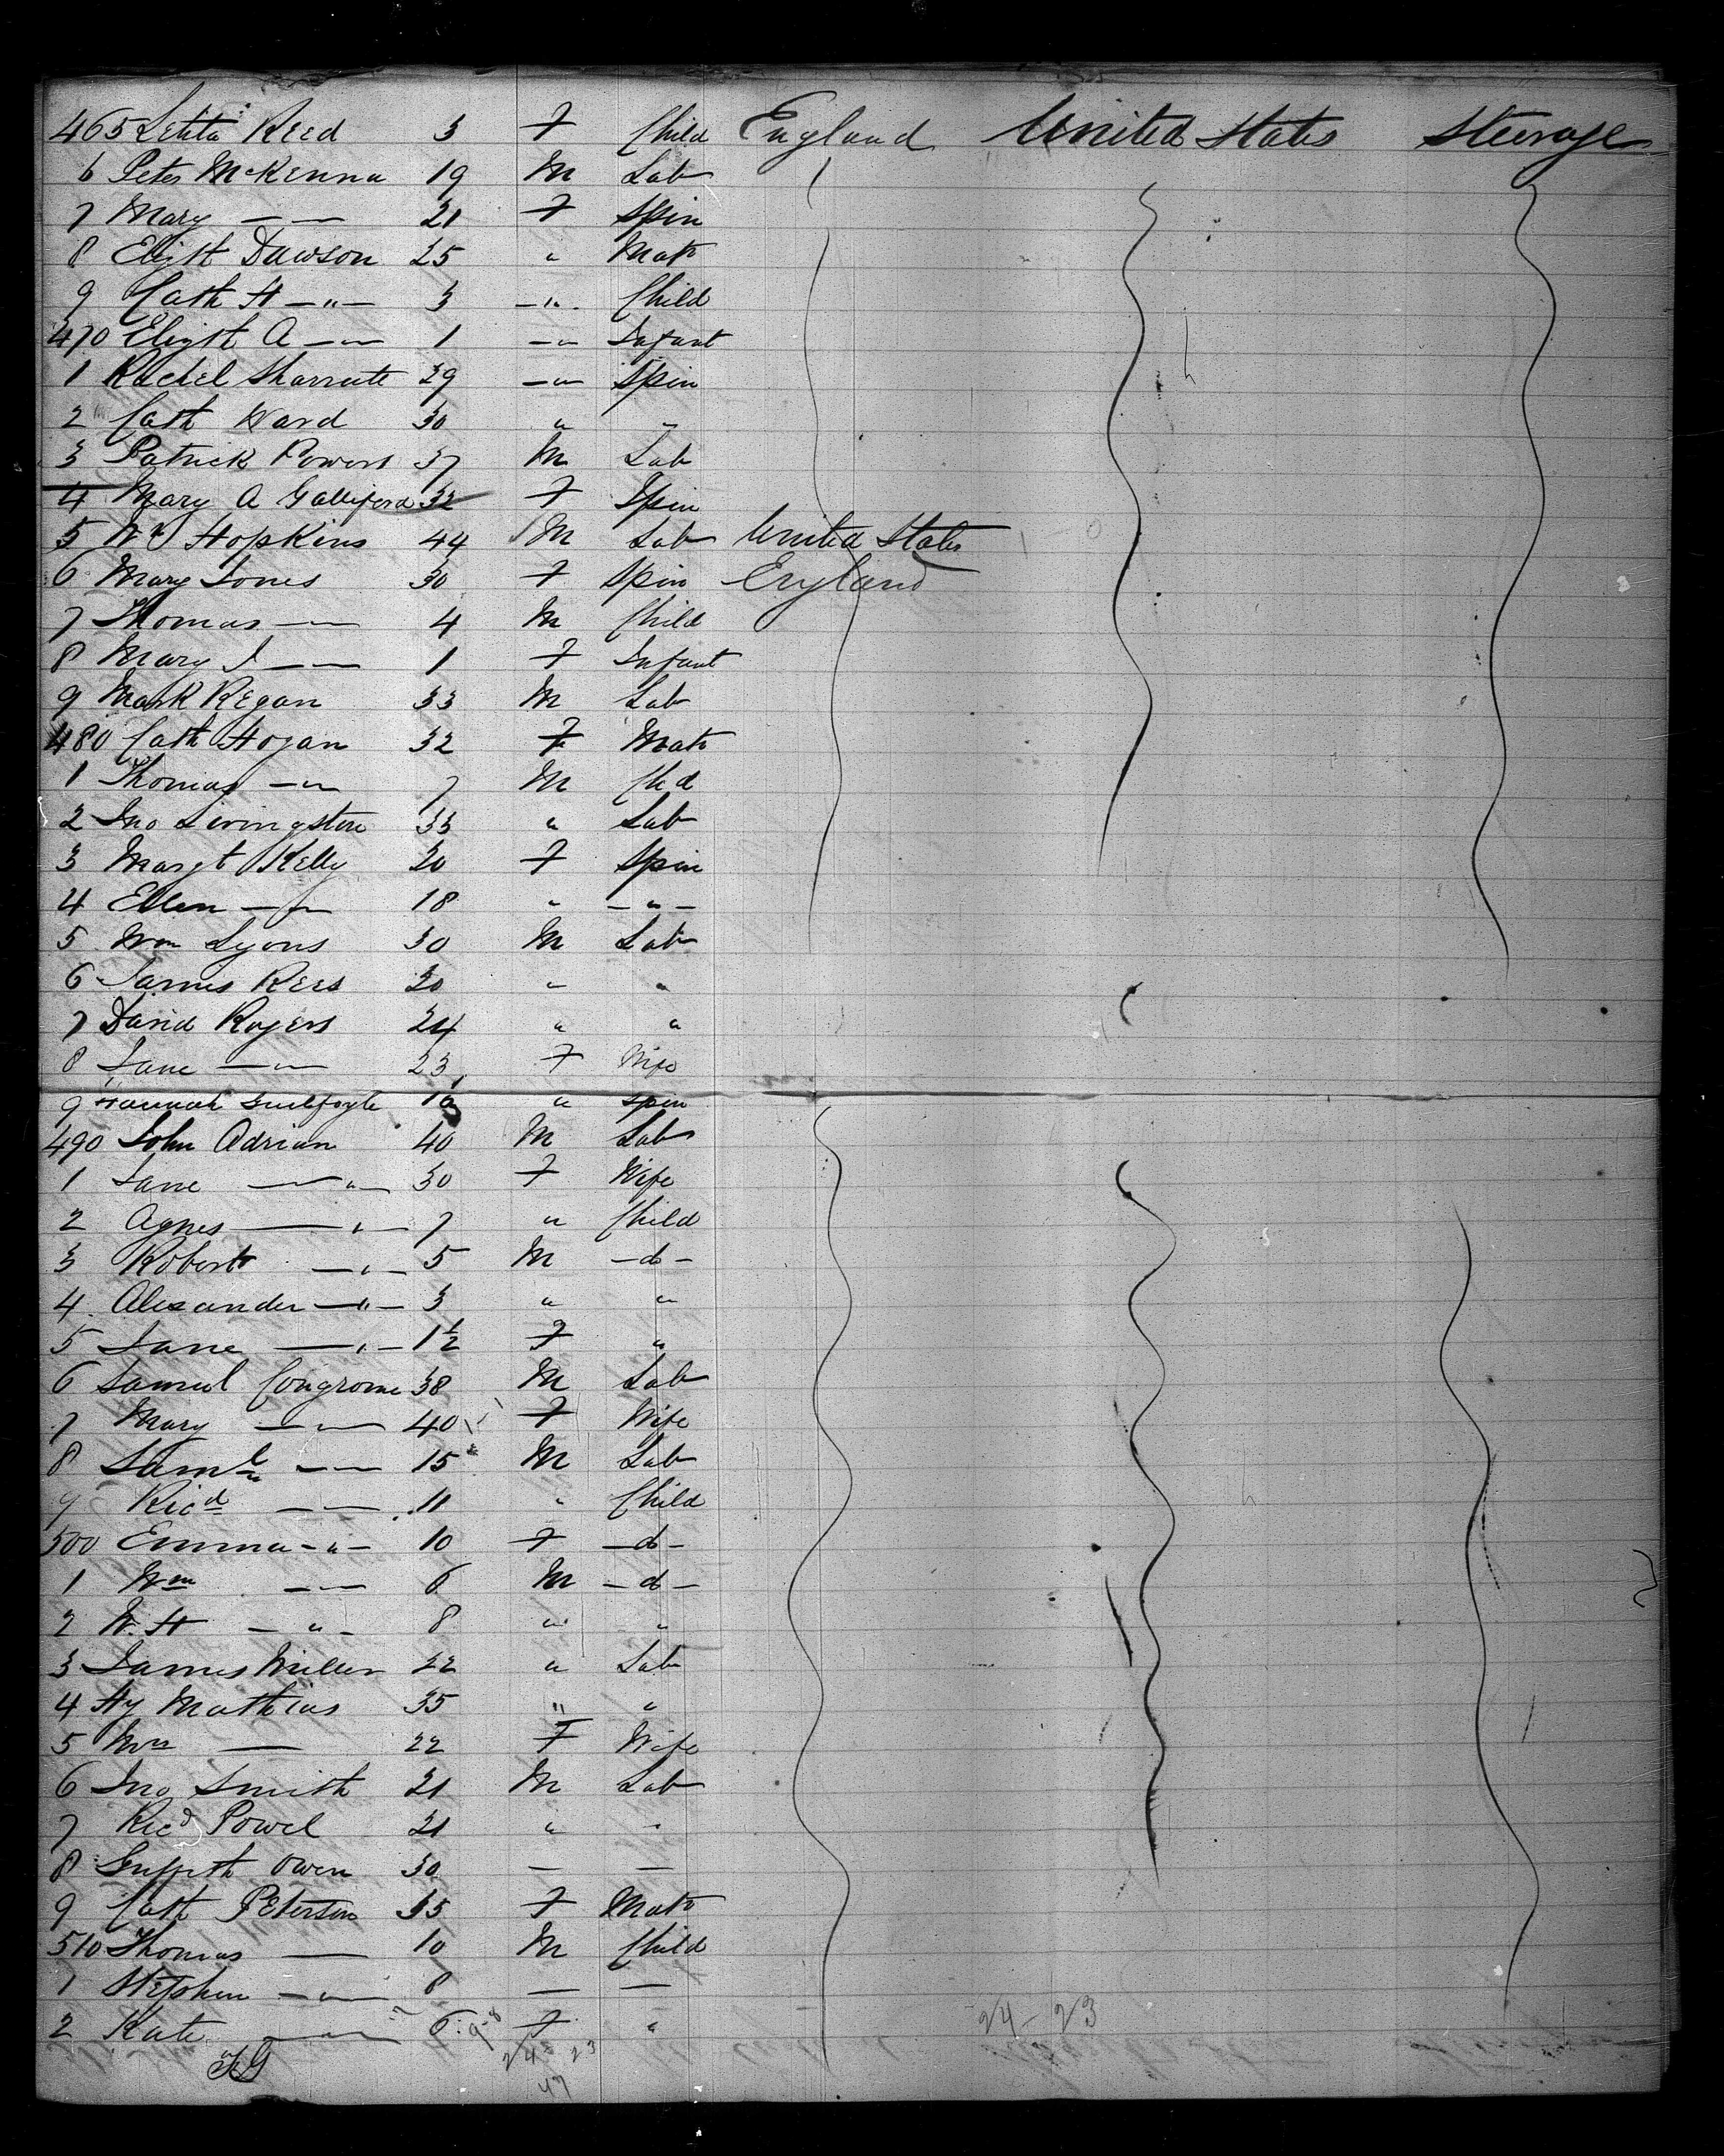 465 Letita Reed 3 F Child England United States Steerage
6 Peter McKenna 19 M Lab
7 Mary — " — 21 F Spin
8 Elizst Dawson 25 " Matr
9 Cath H — " — 3 — " — Child
470 Elizst A — " — 1 — " Infant
1 Rachel 29 — " — Spin
2 Cath Ward 30 " "
3 Patrick Powers 37 M Lab
4 Mary A Galliford 32 F Spin
5 Wm Hopkins 44 M Lab United States
6 Mary Jones 30 F Spin England
7 Thomas — " — 4 M Child
8 Mary J — " — 1 F Infant
9 Mark Regan 33 M Lab
480 Cath Hogan 32 F Matr
1 Thomas — " — 7 M Chd
2 Jno Livingston 33 " Lab
3 Margt Kelly 20 F Spin
4 Ellen — " — 18 " — " —
5 Wm Lyons 30 M Lab
6 James Rees 20 " "
7 David Rogers 24 " "
8 Jane — " — 23 F Wife
9 Hannah Guilfoyle " Spin
490 John Adrian 40 M Lab
1 Jane — " — 30 F Wife
2 Agnes — " — 7 " Child
3 Robert — " — 5 M — do —
4 Alexander — " — 3 " "
5 Jane — " — 1½ F "
6 Samuel Congrove 38 M Lab
7 Mary — " — 40 F Wife
8 Saml — " — 15 M Lab
9 Ricd — " — 11 " Child
500 Emma — " — 10 F — do —
1 Wm — " — 6 M — do —
2 W. H — " — 8 " "
3 James Miller 22 " Lab
4 Hy Mathias 35 " "
5 Mrs — 22 F Wife
6 Jno Smith 21 M Lab
7 Ricd Powel 21 " "
8 Griffith Owen 30 — —
9 Cath Peterson 35 F Matr
510 Thomas — 10 M Child
1 Stephen — " — 8 — —
2 Kate — " — 6 F " 24 - 23
24 23
47